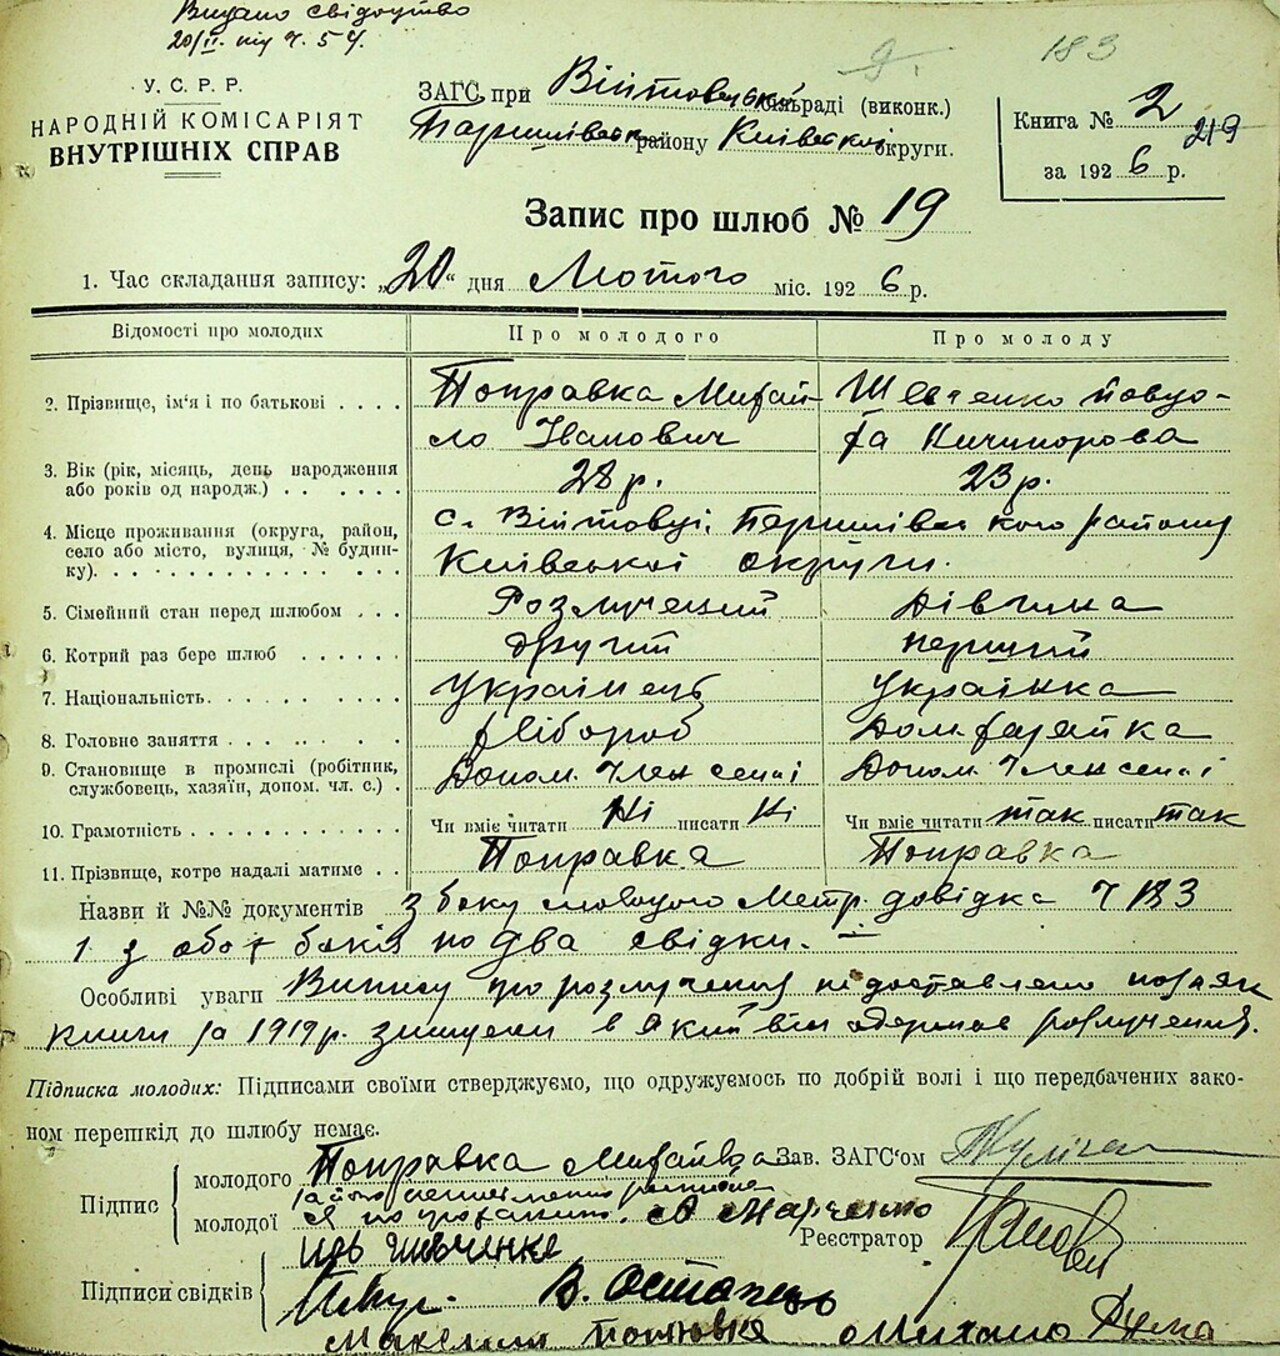 Видано свідоцтво
20/II. під ч. 54.
183
У. С. Р. Р.
НАРОДНІЙ КОМІСАРІЯТ
ВНУТРІШНІХ СПРАВ
ЗАГС при Війтовецькій сільраді (виконк.)
району Київської округи.
Книга № 2
219
за 1926 р.
Запис про шлюб № 19
1. Час складання запису: „20“ дня Лютого міс. 1926 р.
Відомості про молодих
Про молодого
Про молоду
2. Прізвище, ім'я і по батькові
Поправка Михай-
ло Іванович
Шевченко Явдо-
ха Ничипорова
3. Вік (рік, місяць, день народження
або років од народж.)
28 р.
23 р.
4. Місце проживання (округа, район,
село або місто, вулиця, № будин-
ку).
с. Війтовці, району
Київської округи.
5. Сімейний стан перед шлюбом
Розлучений
Дівчина
6. Котрий раз бере шлюб
другий
перший
7. Національність.
Українець
Українка
8. Головне заняття
хлібороб
Домхазяйка
9. Становище в промислі (робітник,
службовець, хазяїн, допом. чл. с.)
Допом. член семі
Допом. член семі
10. Грамотність
Чи вміє читати Ні писати Ні
Чи вміє читати так писати так
11. Прізвище, котре надалі матиме
Поправка
Поправка
Назви й №№ документів з боку молодого Метр. довідка ч 183
і з обох боків по два свідки.
Особливі уваги Випису про розлучення підоставлено позаяк
книги за 1919 р. знищени в який він одержав розлучення.
Підписка молодих: Підписами своїми стверджуємо, що одружуємось по добрій волі і що передбачених зако-
ном перешкід до шлюбу немає.
Підпис
молодого Поправка Михайло
за його неписьменно розписався
молодої я по проханню. О Марченко
Шевченко
Зав. ЗАГС'ом
Реєстратор
Підписи свідків
В. Остапець
Максим
Михайло Дума